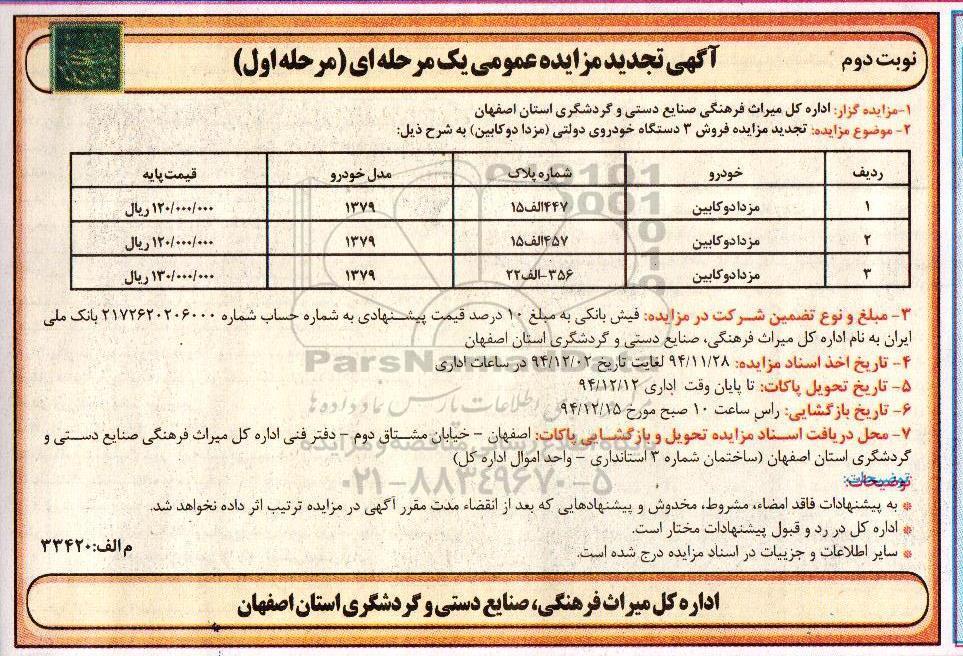 نوبت دوم
آگهی تجدید مزایده عمومی یک مرحله ای (مرحله اول)
۱-مزایده گزار: اداره کل میراث فرهنگی صنایع دستی و گردشگری استان اصفهان
۲- موضوع مزایده: تجدید مزایده فروش ۳ دستگاه خودروی دولتی (مزدا دوکابین) به شرح ذیل:
ردیف خودرو شماره پلاک مدل خودرو قیمت پایه
۱ مزدا دوکابین ۴۴۷الف۱۵ ۱۳۷۹ ۱۲۰/۰۰۰/۰۰۰ ریال
۲ مزدا دوکابین ۴۵۷الف۱۵ ۱۳۷۹ ۱۲۰/۰۰۰/۰۰۰ ریال
۳ مزدا دوکابین ۳۵۶-الف۲۲ ۱۳۷۹ ۱۳۰/۰۰۰/۰۰۰ ریال
۳- مبلغ و نوع تضمین شرکت در مزایده: فیش بانکی به مبلغ ۱۰ درصد قیمت پیشنهادی به شماره حساب شماره ۲۱۷۲۶۲۰۲۰۶۰۰۰ بانک ملی
ایران به نام اداره کل میراث فرهنگی، صنایع دستی و گردشگری استان اصفهان
۴- تاریخ اخذ اسناد مزایده: ۹۴/۱۱/۲۸ لغایت تاریخ ۹۴/۱۲/۰۲ در ساعات اداری
۵- تاریخ تحویل پاکات: تا پایان وقت اداری ۹۴/۱۲/۱۲
۶- تاریخ بازگشایی: راس ساعت ۱۰ صبح مورخ ۹۴/۱۲/۱۵
۷- محل دریافت اسناد مزایده تحویل و بازگشایی پاکات: اصفهان – خیابان مشتاق دوم – دفتر فنی اداره کل میراث فرهنگی صنایع دستی و
گردشگری استان اصفهان (ساختمان شماره ۳ استانداری – واحد اموال اداره کل)
توضیحات:
* به پیشنهادات فاقد امضاء، مشروط، مخدوش و پیشنهادهایی که بعد از انقضاء مدت مقرر آگهی در مزایده ترتیب اثر داده نخواهد شد.
* اداره کل در رد و قبول پیشنهادات مختار است.
* سایر اطلاعات و جزییات در اسناد مزایده درج شده است.
م الف: ۳۳۴۲۰
اداره کل میراث فرهنگی، صنایع دستی و گردشگری استان اصفهان
۰۲۱-۸۸۳۴۹۶۷۰-۵